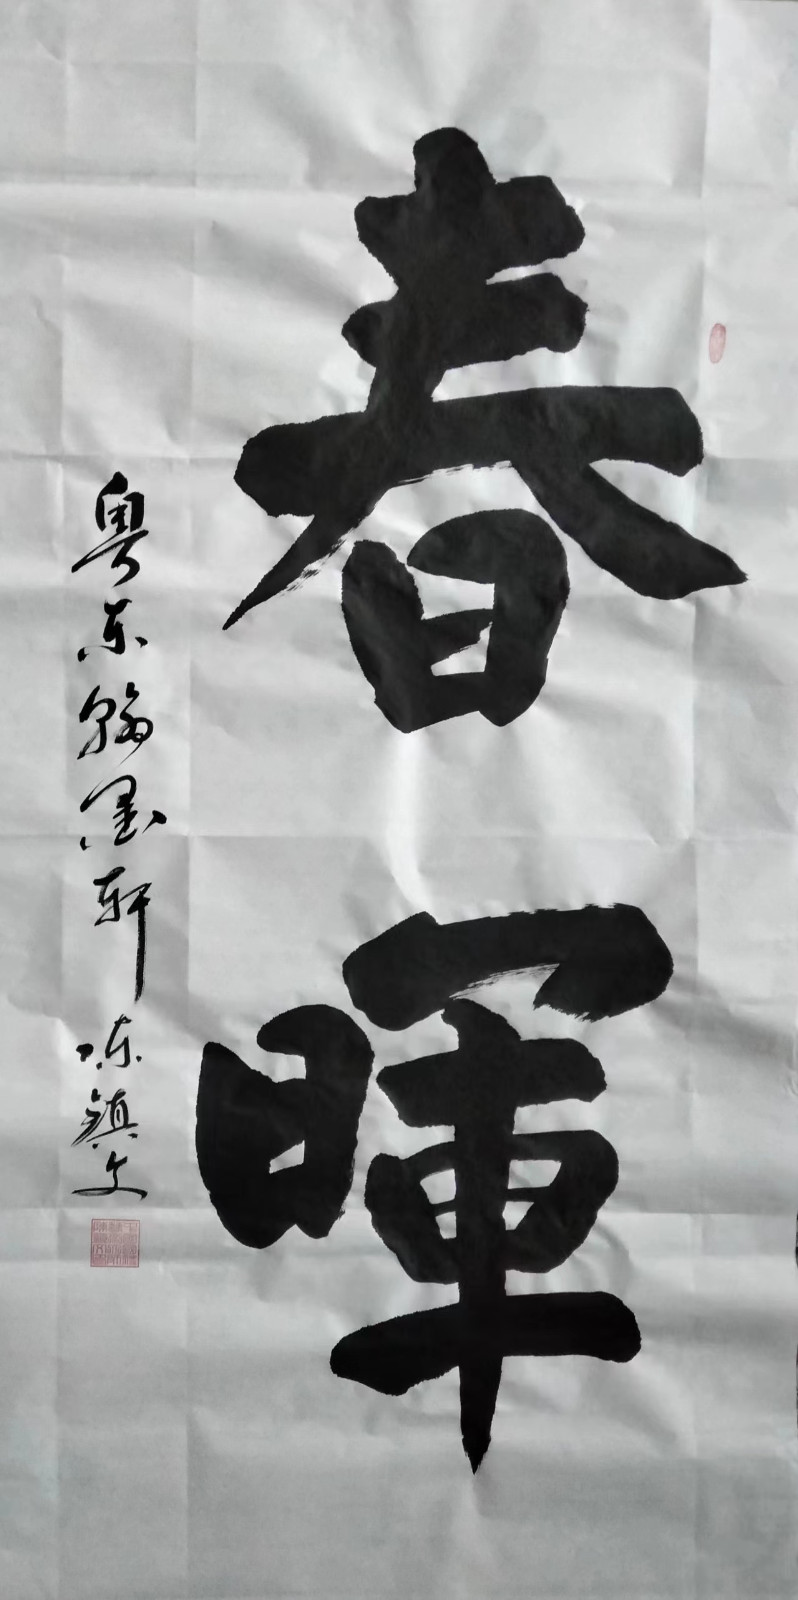 春暉
粤东翰墨轩陈镇文